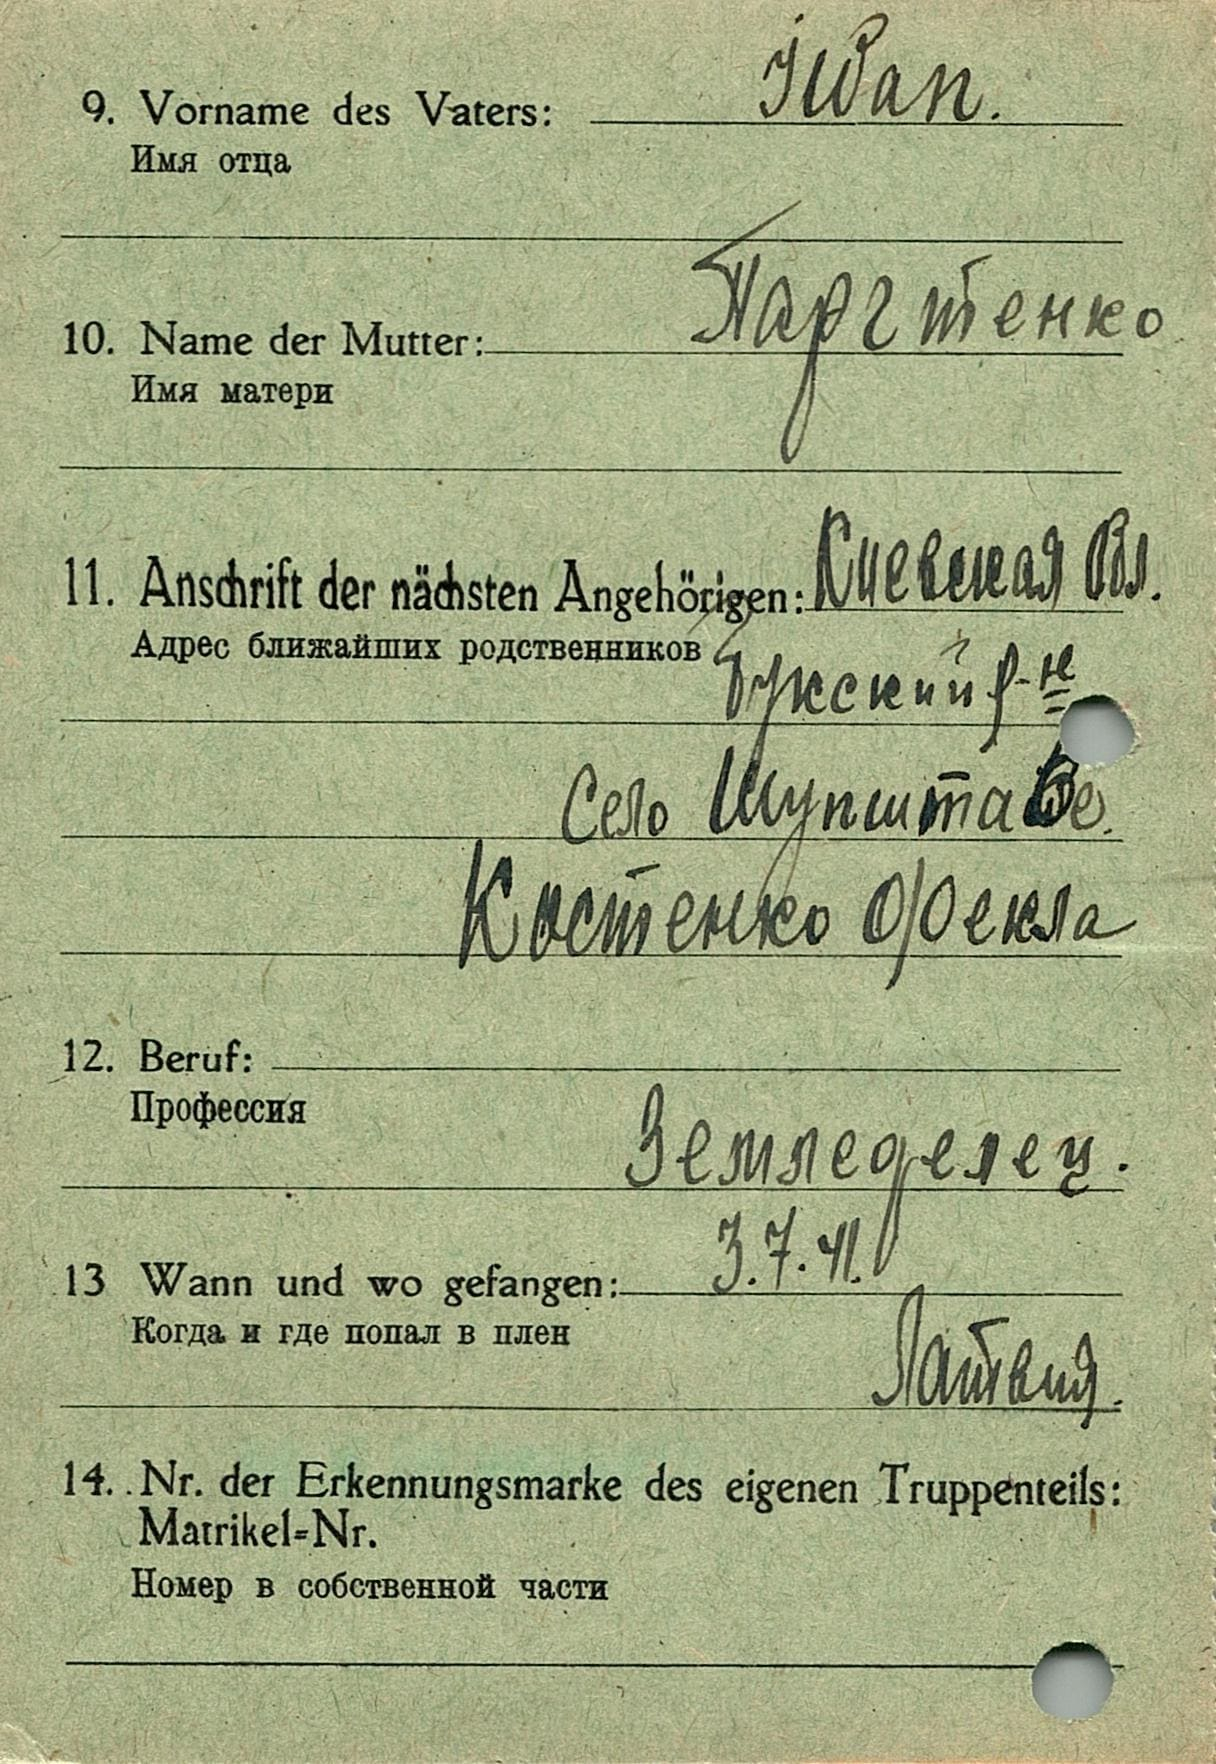 9. Vorname des Vaters: Іван.
Имя отца
10. Name der Mutter:
Имя матери
11. Anschrift der nächsten Angehörigen: Киевская Вл.
Адрес ближайших родственников
Букский р-н
Село
Костенко Фекла
12. Beruf:
Профессия
Земледелец.
3.7.41.
13 Wann und wo gefangen:
Когда и где попал в плен
Латвия.
14. Nr. der Erkennungsmarke des eigenen Truppenteils:
Matrikel=Nr.
Номер в собственной части